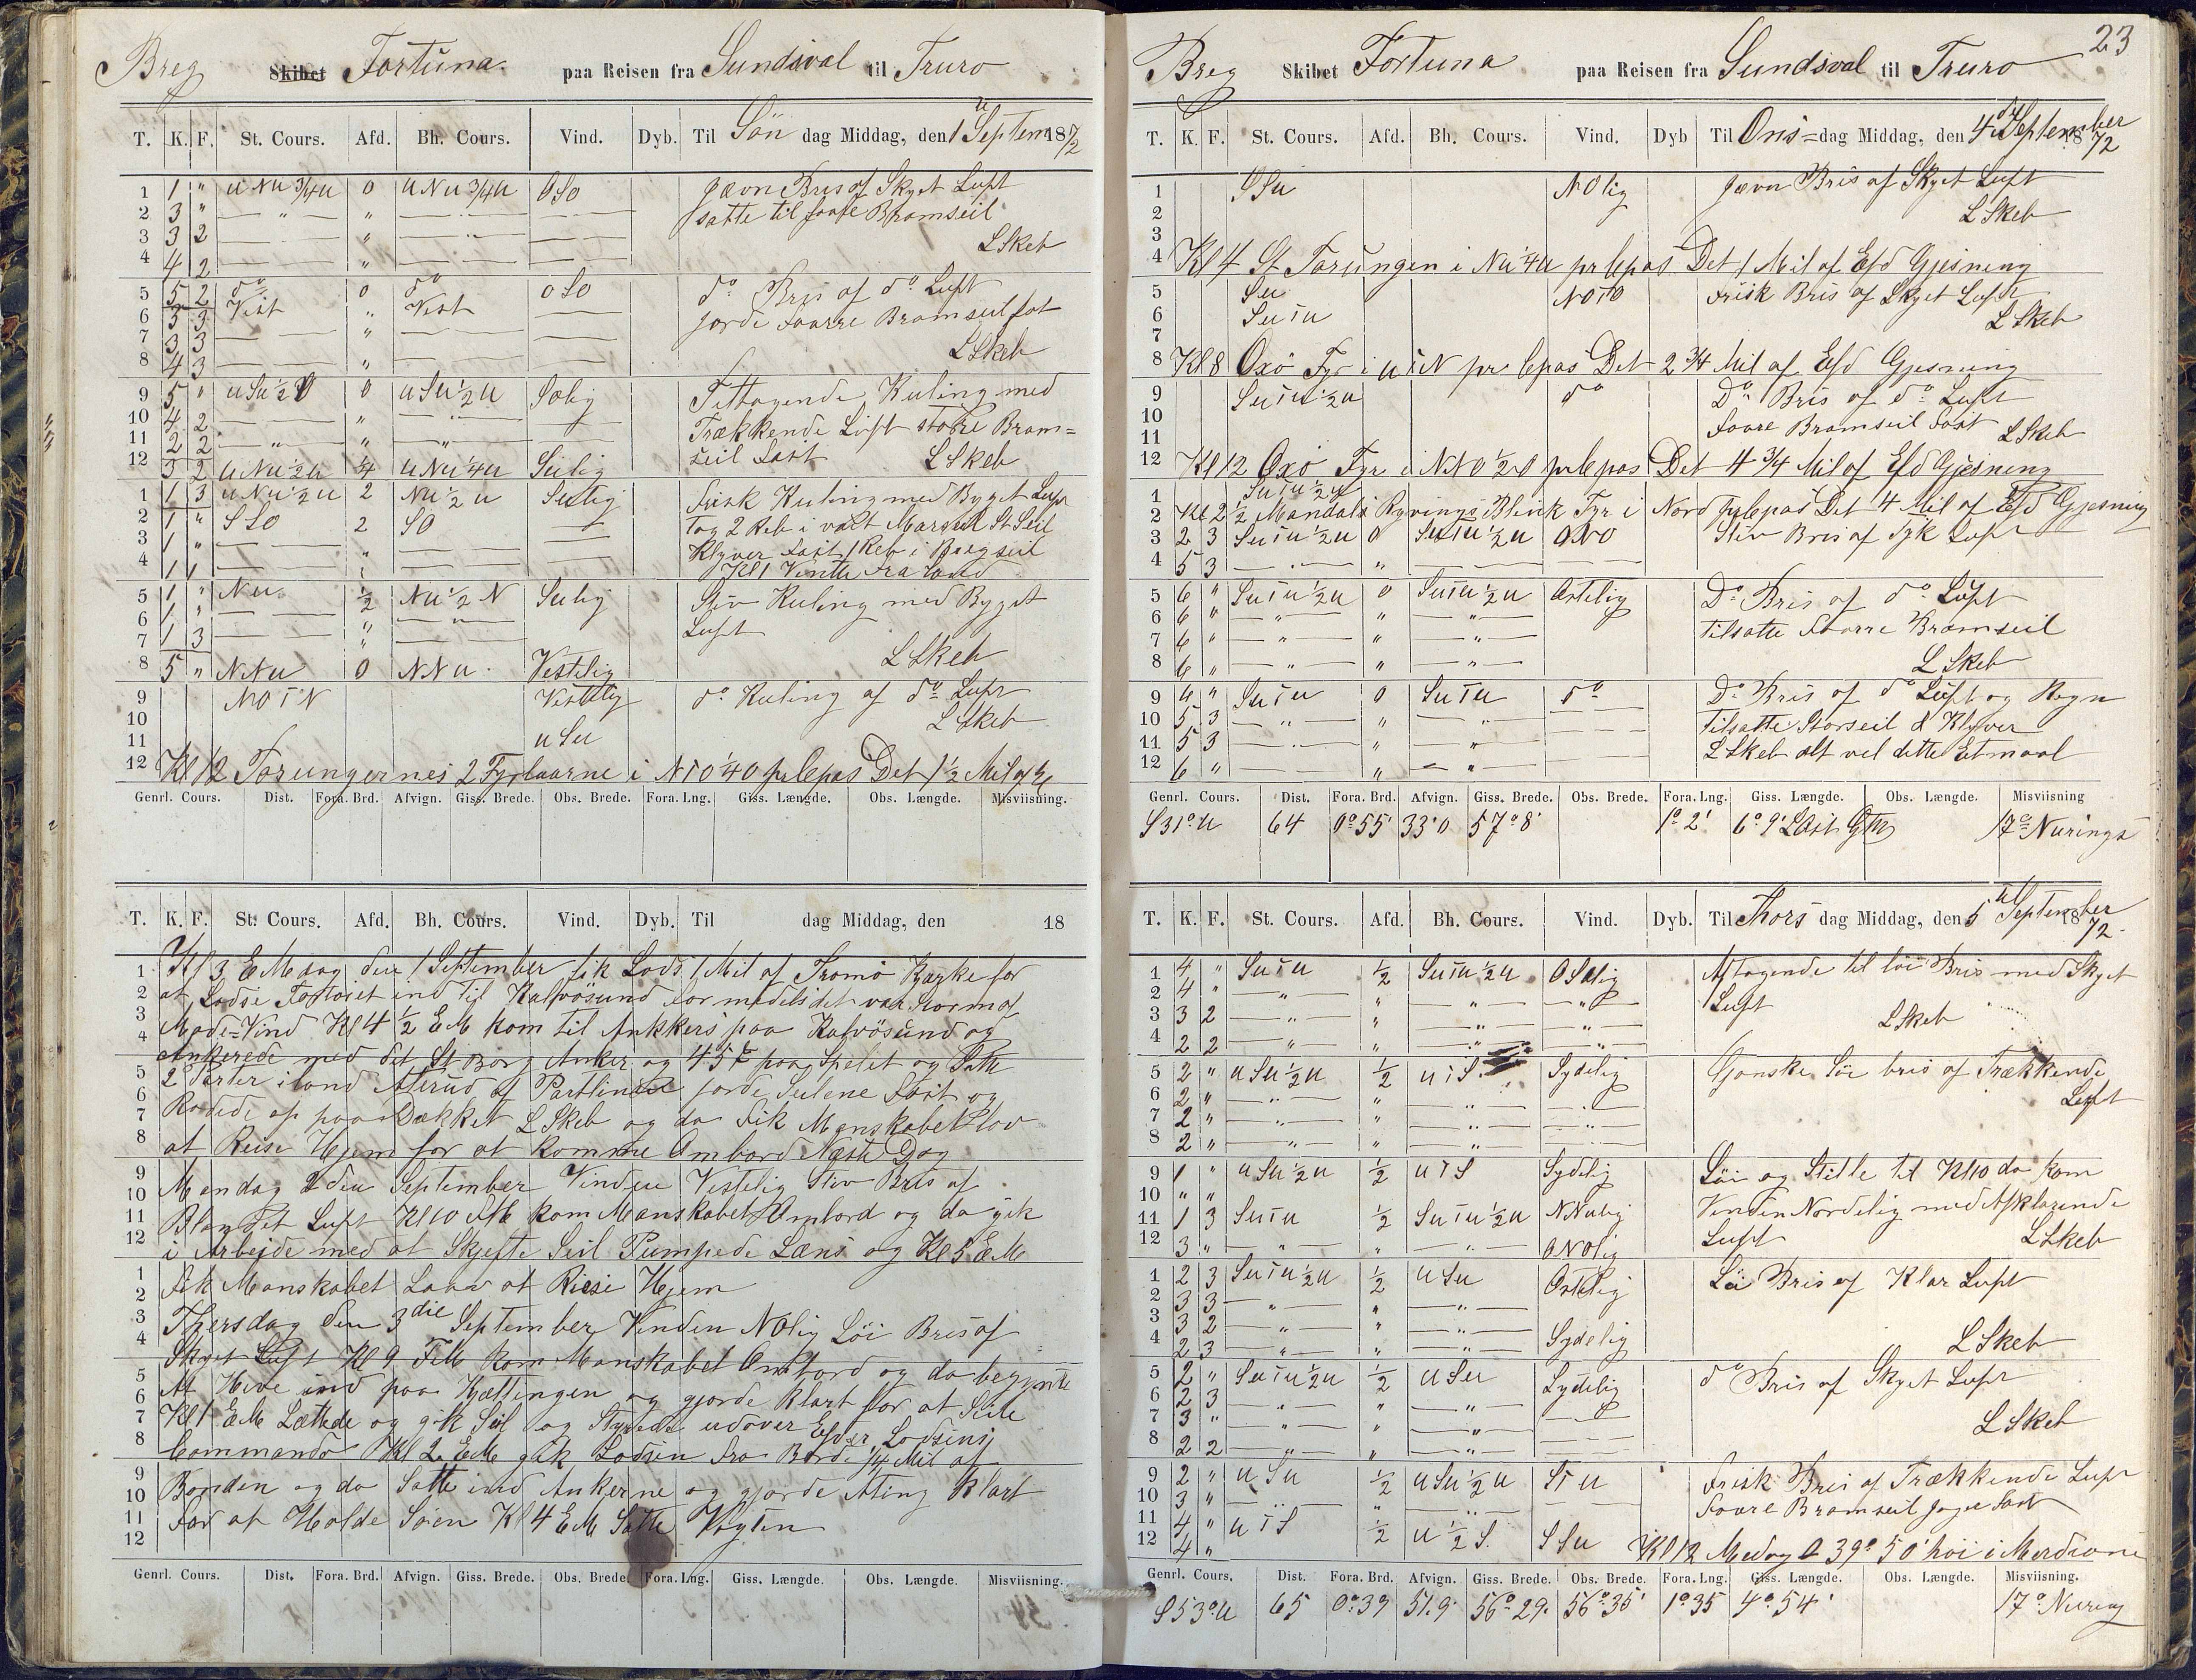 Breg Skibet Fortuna. paa Reisen fra Sundsval til Truro
T. K. F. St. Cours. Afd. Bh. Cours. Vind. Dyb. Til Sön dag Middag, den 1 Septem 1872
1 1 " uNu 3/4u 0 uNu 3/4u OSO Jævn Bris af Skyet Luft
2 3 " — " — " — " — satte til faare Bramseil
3 3 2 — " — " — LSkeb
4 4 2 — " —
5 5 2 do 0 do OSO do Bris af do Luft
6 3 3 Vest " Vest — jorde Faarre Bramseil fat
7 3 3 — " —
8 4 3 — " — LSkeb
9 5 " uSu 1/2 0 uSu 1/2 u Solig Tiltagende Kuling med
10 4 2 — " — Trækkende Luft store Bram=
11 2 2 — " — " — " — seil Fast LSkeb
12 3 2 uNu 1/2 u 1/4 uNu 1/4 u Sulig
1 1 3 uNu 1/2 u 2 Nu 1/2 u Sulig Frisk Kuling med Byget Luft
2 1 " SSO 2 SO — Tog 2 Reb i vært Marseil St Seil
3 1 " — " — Klyver Fast 1 Reb i Brægseil
4 1 1 — " — Kl 1 Vente fra Land
5 1 " Nu 1/2 Nu 1/2 N Sulig Stiv Kuling med Byget
6 1 " — " — " — Luft
7 1 3 — " —
8 5 " NNu 0 NNu Vestelig LSkeb
9 NOTN Vestelig do Kuling af do Luft
10 LSkeb
11 uSu
12 Kl 12 Torungernes 2 Fyrtaarne i NTO 1/4 O pr Cepas Det 1 1/2 Mil af
Genrl. Cours. Dist. Fora. Brd. Afvign. Giss. Brede. Obs. Brede. Fora. Lng. Giss. Længde. Obs. Længde. Misviisning.
T. K. F. St. Cours. Afd. Bh. Cours. Vind. Dyb. Til dag Middag, den 18
Kl 3 EMdag den 1 September fik Lods 1 Mil af Tromö Kazke for
at Lodse Fartöiet ind til Kalvösund for medelst det var Storm af
Mode=Vind Kl 4 1/2 EM kom til Ankkers paa Kalvösund og
Ankerede med det St Borg Anker og 45 F paa Spelet og Satte
2 Perter iland Agerud af Partlinen jorde Seilene Fast og
Rødede op paa Dækket LSkeb og da Fik Manskabet Lov
at Reise Hjem for at komme Ombord Næste Dag
Mandag 2 den September Vinden Vestelig Stiv Bris af
Blandet Luft Kl 10 FM kom Manskabet Ombord og da gik
i Arbejde med at Skjefte Seil Pumpede Læns og Kl 5 EM
Fik Manskabet Laav at Riese Hjem
Thersdag den 3die September Vinden NOlig Löi Bris af
Skyet Luft Kl 9 FM kom Manskabet Ombord og da begynte
At Hive ind paa Kjættingen og gjorde klart for at Seile
Kl 1 EM Lættede og gik Seil og Styrede udover Efter Lodsens
Commando Kl 2 EM gik Lodsen fra Borde 1/4 Mil af
Randen og da Satte ind Ankerne og gjorde Alting klart
For at Holde Söen Kl 4 EM Satte Vagten
Genrl. Cours. Dist. Fora. Brd. Afvign. Giss. Brede. Obs. Brede. Fora. Lng. Giss. Længde. Obs. Længde. Misviisning.
23
Breg Skibet Fortuna paa Reisen fra Sundsval til Truro
T. K. F. St. Cours. Afd. Bh. Cours. Vind. Dyb Til Ons=dag Middag, den 4 September 1872
1 SSu NOlig jævn Bris af Skyet Luft
2 LSkeb
3
4 Kl 4 St Torungen i Nu 1/4 u pr Cepas Det 1 Mil af Efd Gjesning
5 Su NOTO Frisk Bris af Skyet Luft
6 SuTu LSkeb
7
8 Kl 8 Oxö Fyr i uTN pr Cepas Det 2 3/4 Mil af Efd Gjesning
9 SuTu 1/2 u do Do Bris af do Luft
10 Faare Bramseil Fast
11 LSkeb
12 Kl 12 Oxö Fyr i NNO 1/2 O pr Cepas Det 4 3/4 Mil af Efd Gjesning
1 SuTu 1/2 u
2 Kl 2 1/2 Mandals Ryvings Blink Fyr i Nord pr Cepas Det 4 Mil af Efd Gjesning
3 2 3 SuTu 1/2 u 0 SuTu 1/2 u ONO Stiv Bris af Tyk Luft
4 5 3 — " —
5 6 " SuTu 1/2 u 0 SuTu 1/2 u Ostelig Do Bris af do Luft
6 6 " — " — " — " — Tilsatte Faarre Bramseil
7 6 " — " — " — " —
8 6 " — " — " — " — LSkeb
9 4 " SuTu 0 SuTu do Do Bris af do Luft og Regn
10 5 3 — " — " — " — Tilsatte Storseil & Klyver
11 5 3 — " — " — " — LSkeb alt vel dette Etmaal
12 6 " — " — " —
Genrl. Cours. Dist. Fora. Brd. Afvign. Giss. Brede. Obs. Brede. Fora. Lng. Giss. Længde. Obs. Længde. Misviisning
S31°u 64 0°55' 33'0 57°8' 1°2' 6°9' LOst Gm 17° Nurings
T. K. F. St. Cours. Afd. Bh. Cours. Vind. Dyb. Til Thors dag Middag, den 5 September 1872
1 4 " SuTu 1/2 SuTu 1/2 u OSOlig Aftagende til löi Bris med Skyet
2 4 " — " — " — " — Luft
3 3 2 — " — " — " — LSkeb
4 2 2 — " — " — " —
5 2 " uSu 1/2 u 1/2 uTS Sydelig Ganske Löi bris af Trækkende
6 2 " — " — " — " — Luft
7 2 " — " — " — " —
8 2 " — " — " — " —
9 1 " uSu 1/2 u 1/2 uTS Sydelig Löi og Stille til Kl 10 da kom
10 " " Vinden Nordelig med Afklarende
11 1 3 SuTu 1/2 SuTu 1/2 u NNulig Luft
12 3 " — " — " — " — ONOlig LSkeb
1 2 3 SuTu 1/2 u 1/2 uSu Ostelig Löi Bris af Klar Luft
2 3 3 — " — " — " —
3 3 2 — " — " — " —
4 2 3 — " — " — " — Sydelig LSkeb
5 2 " SuTu 1/2 u 1/2 uSu Sydelig do Bris af Skyet Luft
6 2 3 — " — " — " —
7 3 " — " — " — " — LSkeb
8 2 2 — " — " — " —
9 2 " uSu 1/2 uSu 1/2 u STu Frisk Bris af Trækkende Luft
10 3 " — " — " — " — Faare Bramseil Fast
11 4 " uTS 1/2 u 1/2 S. SSu
12 4 " Kl 12 Medag 39° 50' höi i Merdiane
Genrl. Cours. Dist. Fora. Brd. Afvign. Giss. Brede. Obs. Brede. Fora. Lng. Giss. Længde. Obs. Længde. Misviisning.
S53°u 65 0°39 51.9' 56°29' 56°35' 1°35 4°54' 17° Nuring